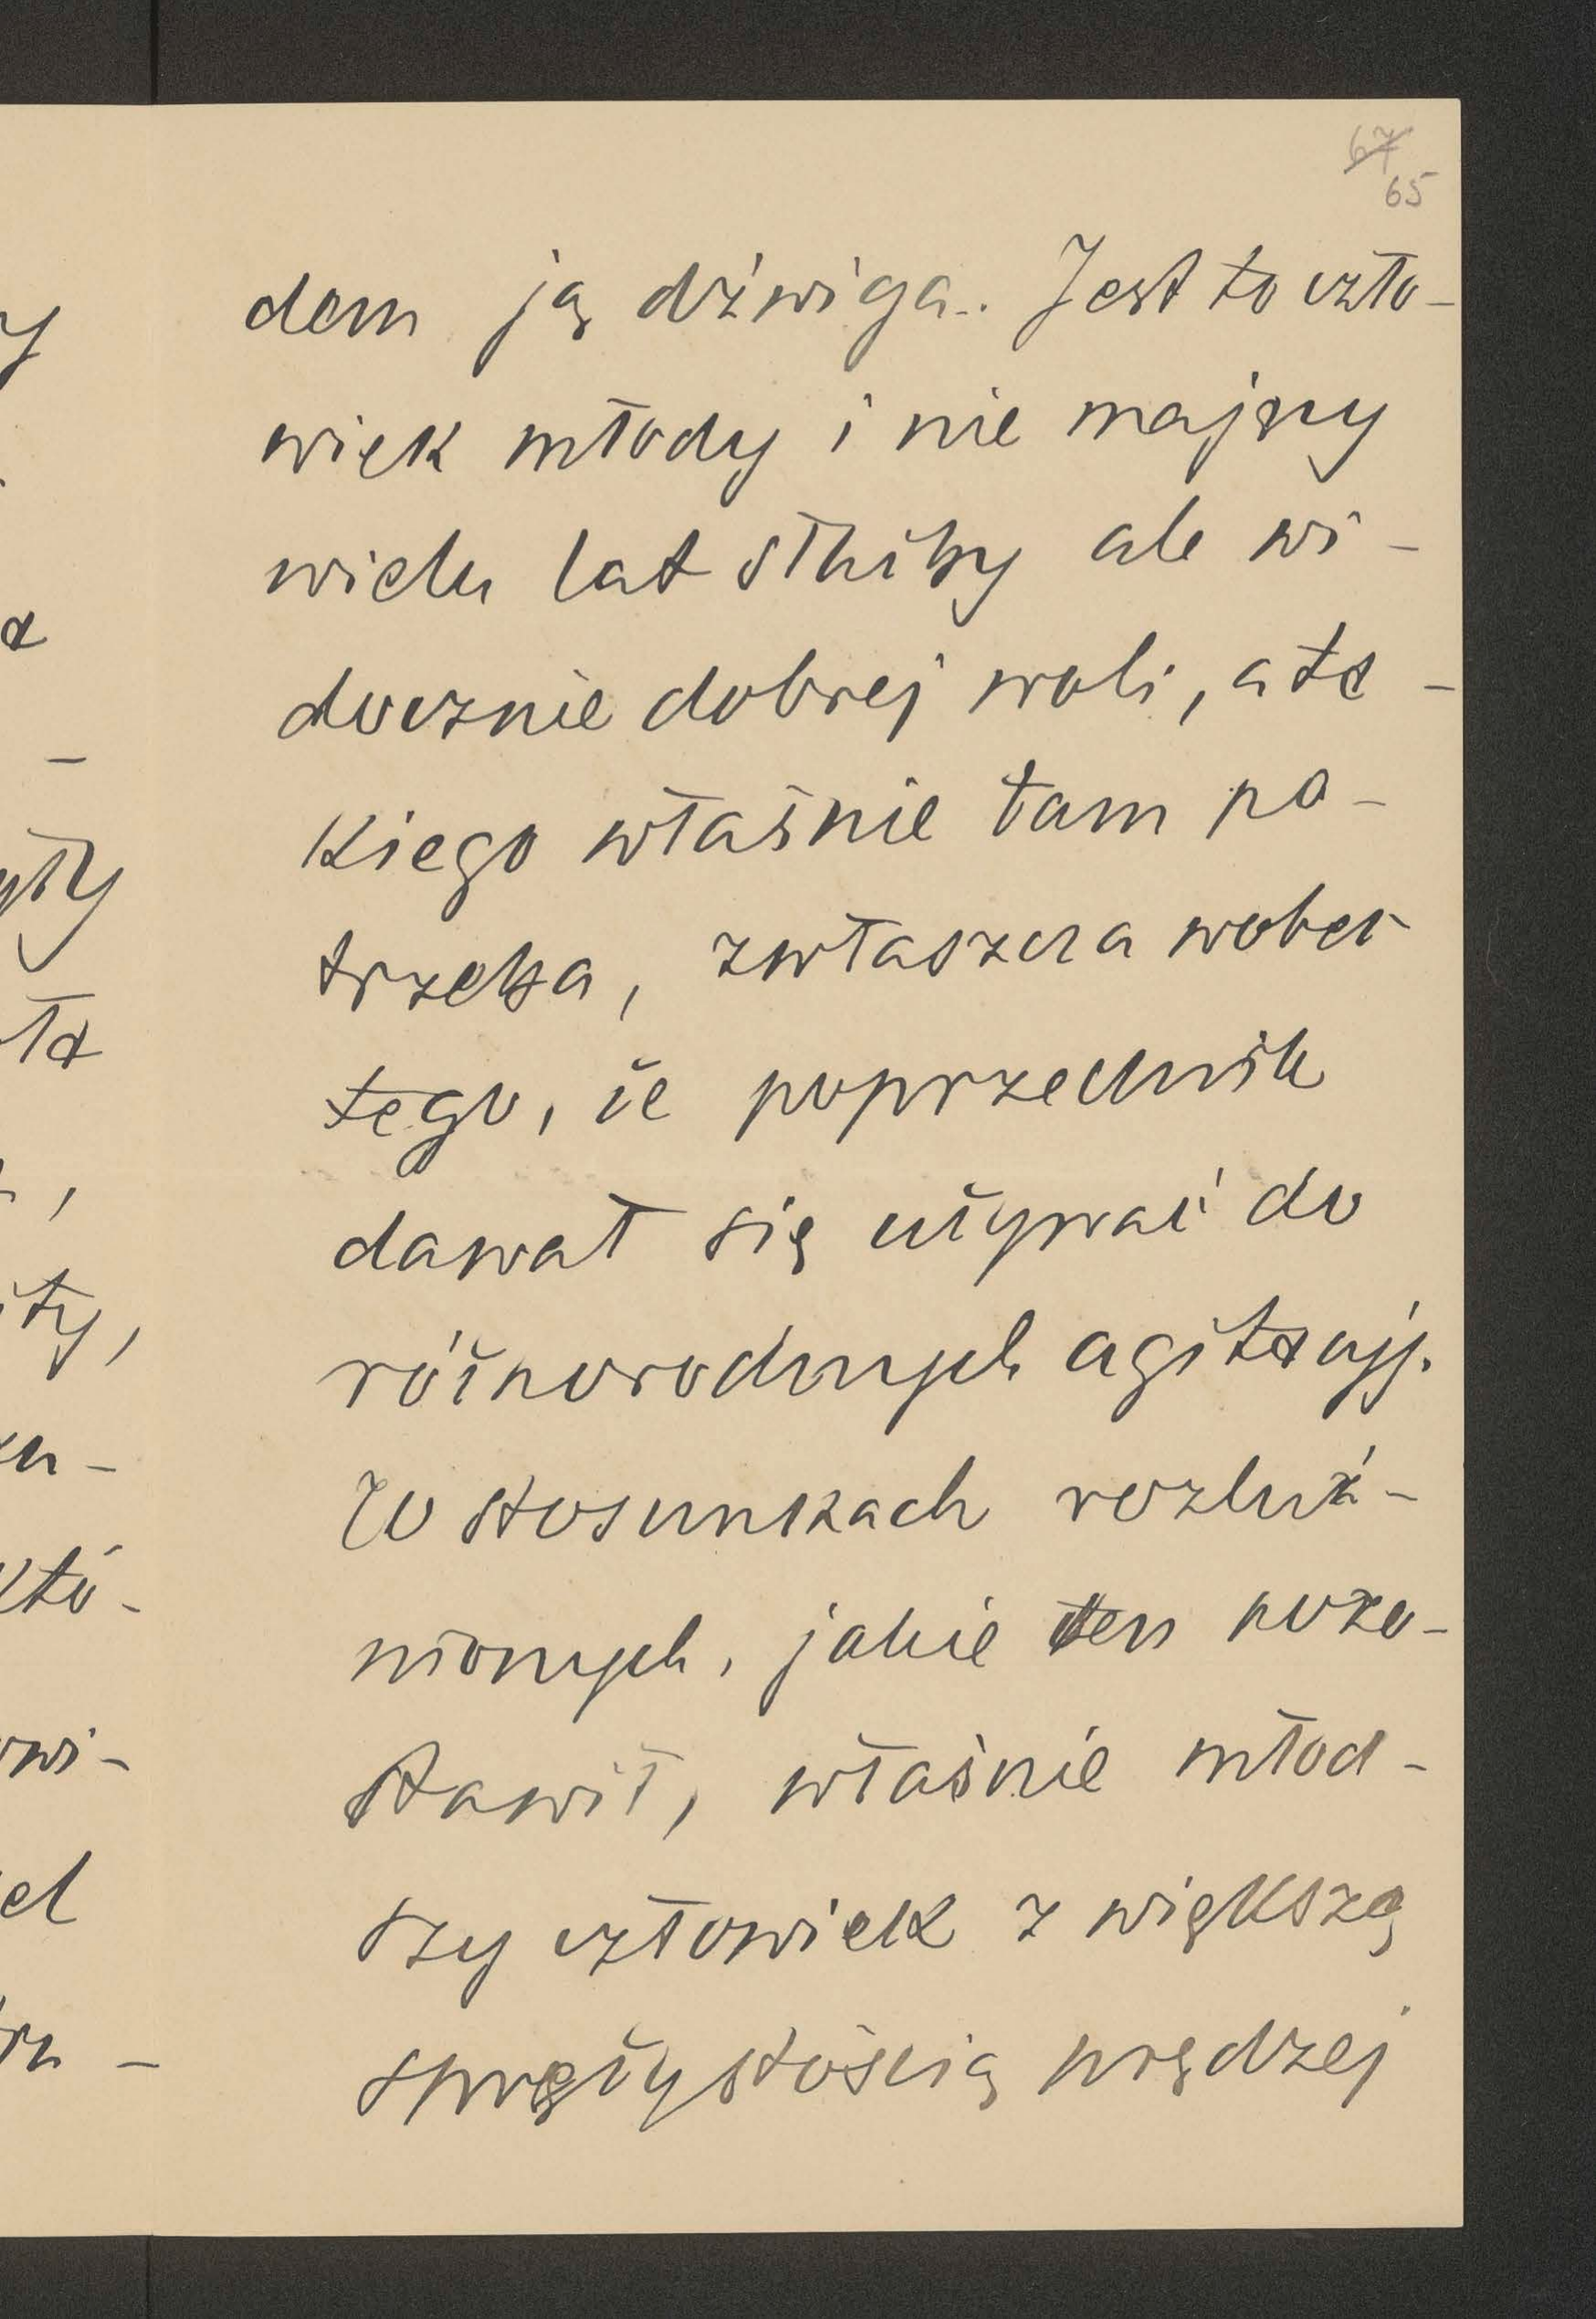 67
65
dem ją dźwiga. Jest to czło-
wiek młody i nie mający
wielu lat służby ale wi-
docznie dobrej woli, a ta-
kiego właśnie tam po-
trzeba, zwłaszcza wobec
tego, że poprzednik
dawał się używać do
różnorodnych agitacyj.
W stosunkach rozluź-
nionych, jakie ten pozo-
stawił, właśnie młod-
szy człowiek z większą
sprężystością prędzej